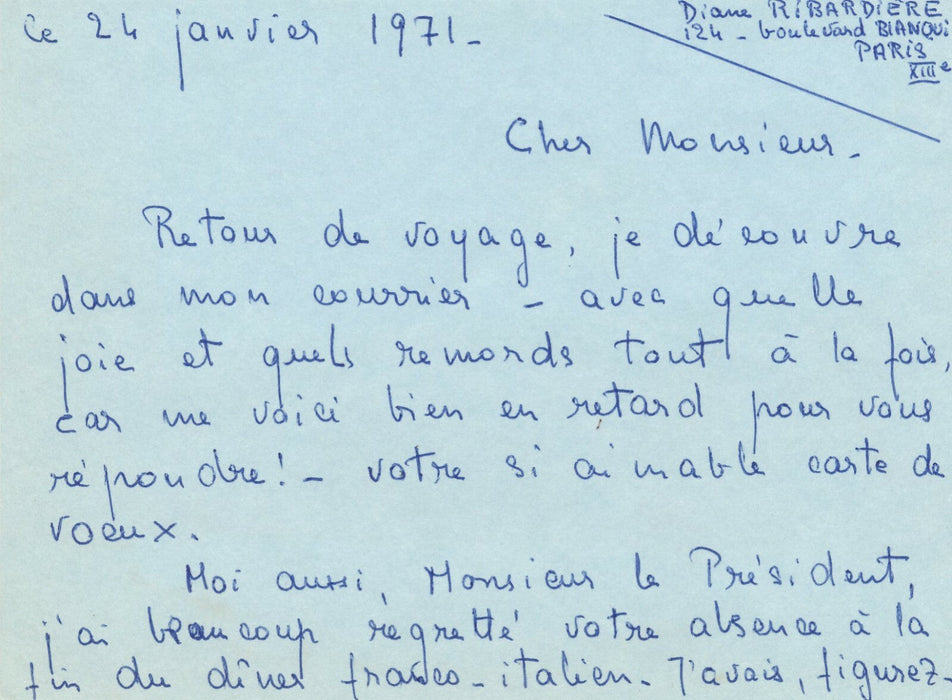 Ce 24 janvier 1971_
Diane RIBARDIÈRE
124 - boulevard BLANQUI
PARIS
XIIIe
Cher Monsieur_
Retour de voyage, je découvre
dans mon courrier - avec quelle
joie et quels remords tout à la fois,
car me voici bien en retard pour vous
répondre! - votre si aimable carte de
voeux.
Moi aussi, Monsieur le Président,
j'ai beaucoup regretté votre absence à la
fin du dîner franco-italien. J'avais, figurez